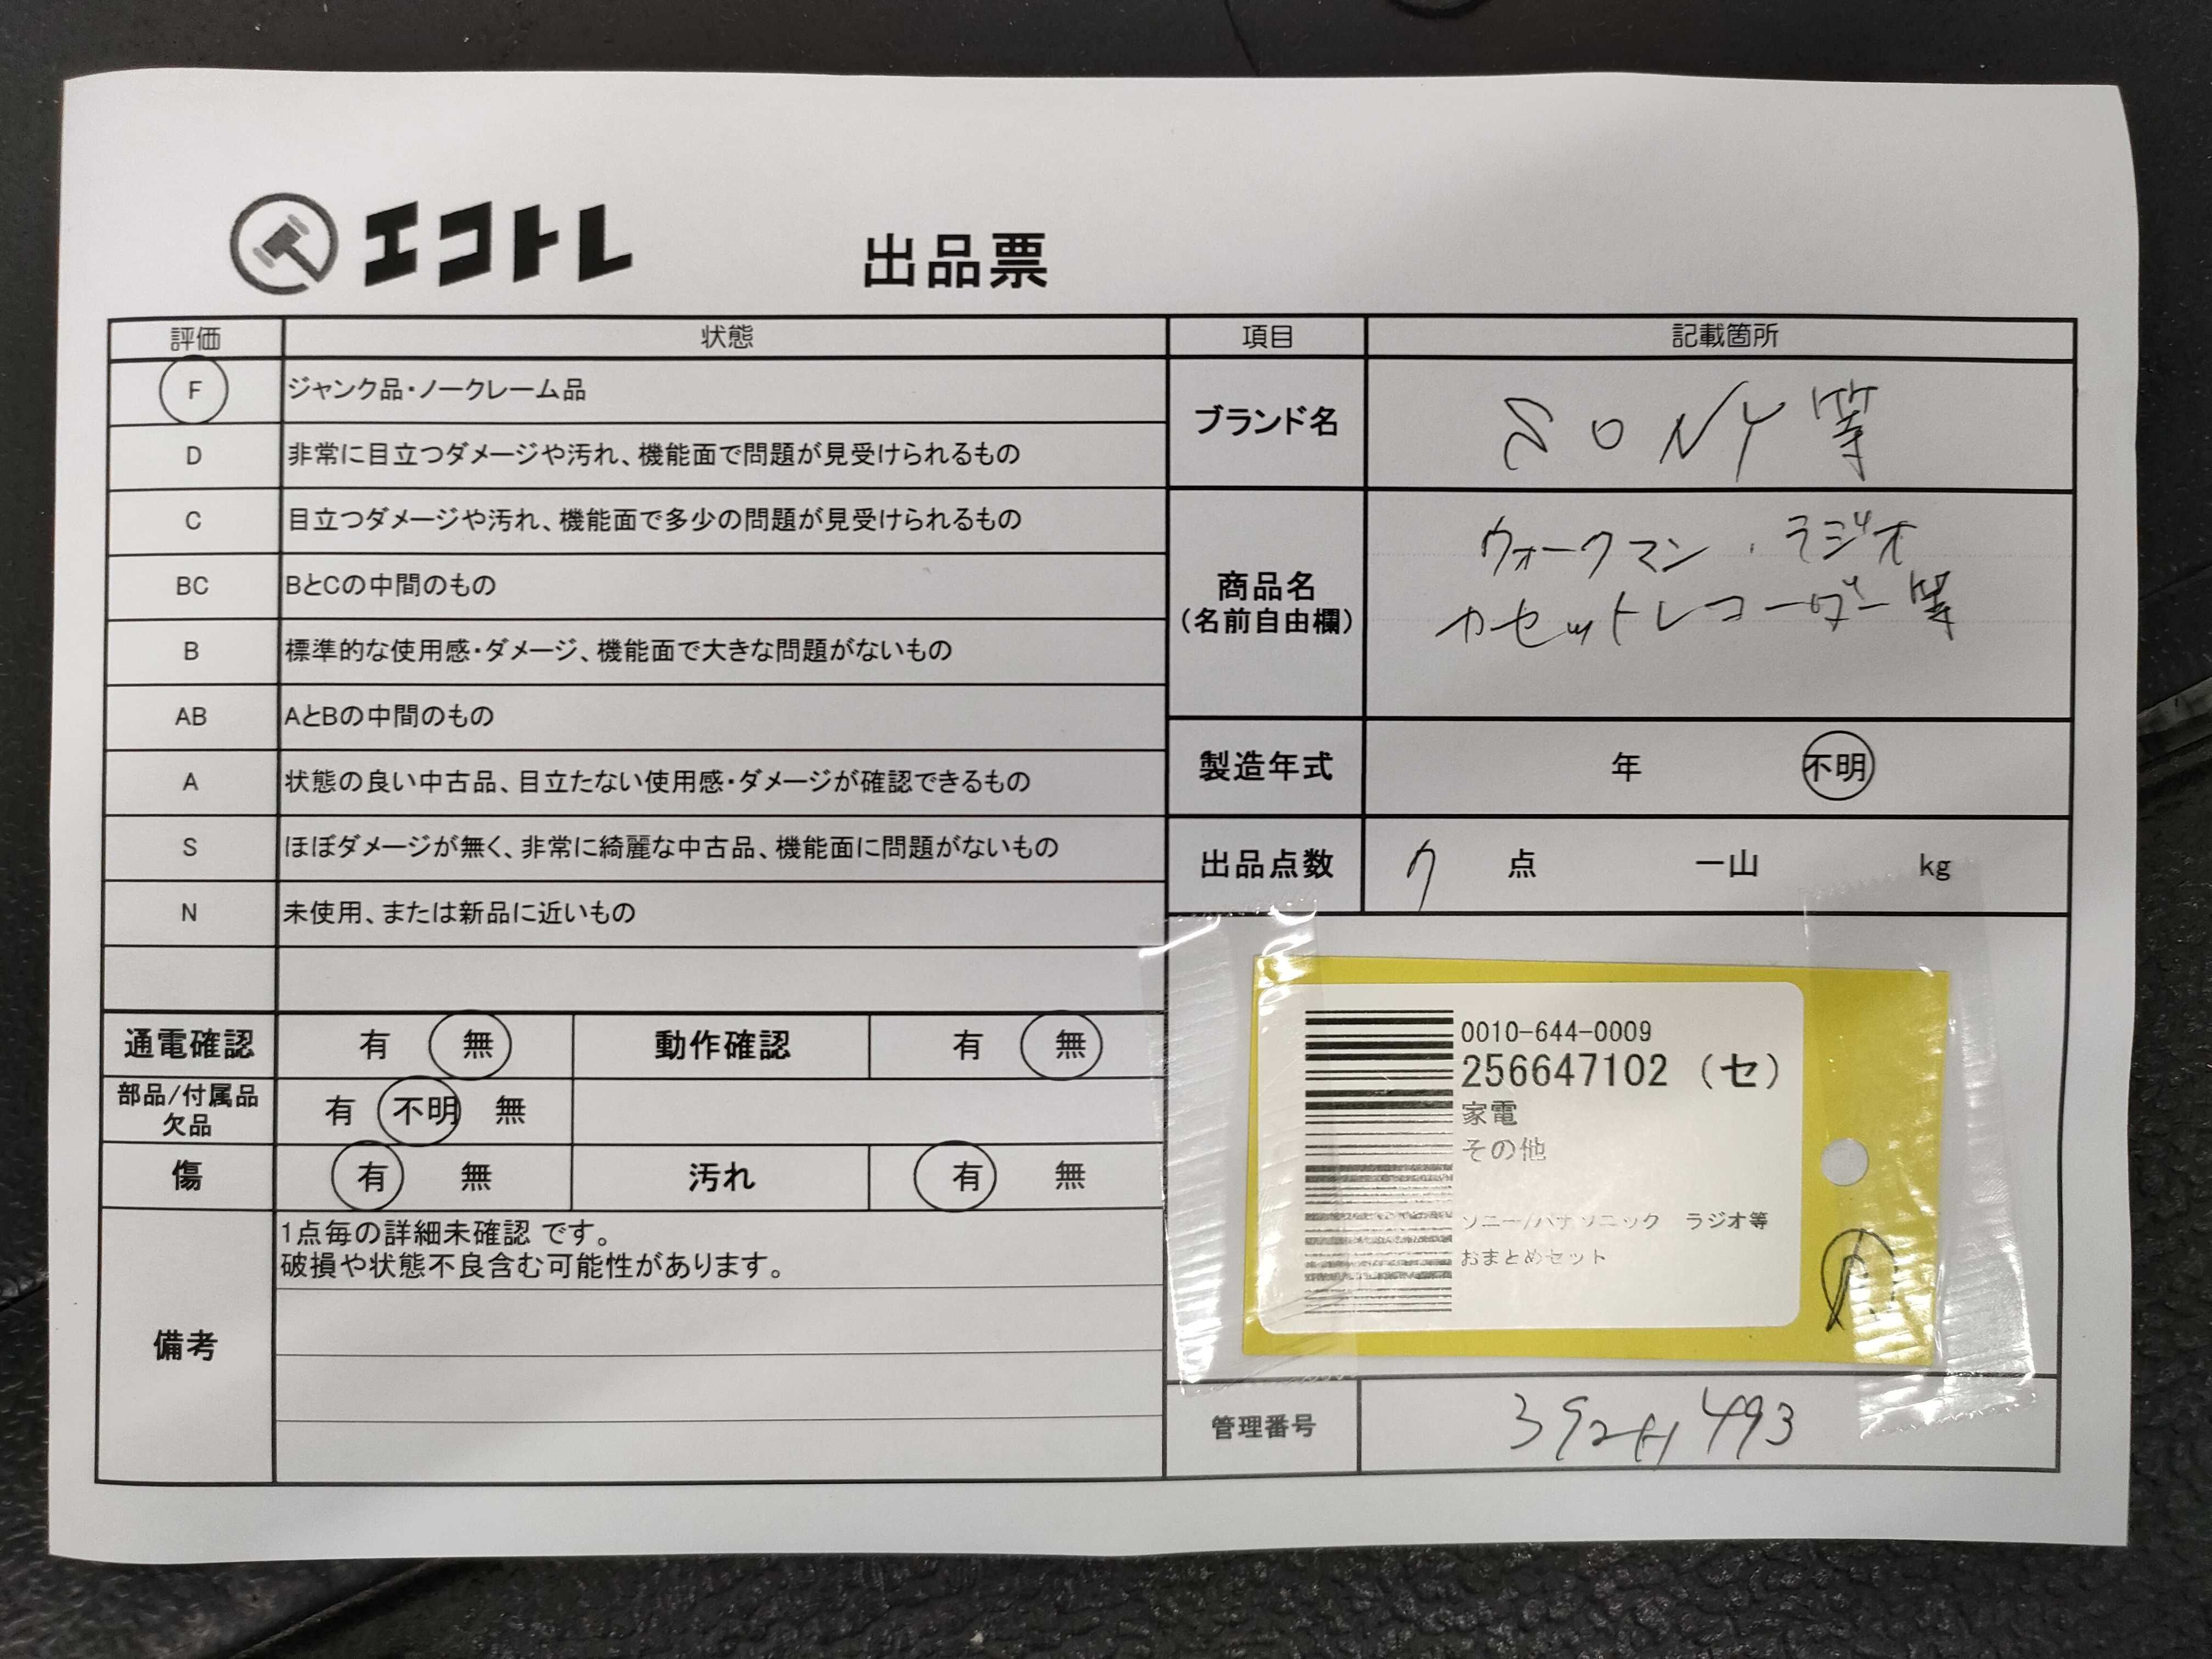 エコトレ
出品票
評価 状態
F ジャンク品・ノークレーム品
D 非常に目立つダメージや汚れ、機能面で問題が見受けられるもの
C 目立つダメージや汚れ、機能面で多少の問題が見受けられるもの
BC BとCの中間のもの
B 標準的な使用感・ダメージ、機能面で大きな問題がないもの
AB AとBの中間のもの
A 状態の良い中古品、目立たない使用感・ダメージが確認できるもの
S ほぼダメージが無く、非常に綺麗な中古品、機能面に問題がないもの
N 未使用、または新品に近いもの
通電確認 有 無 動作確認 有 無
部品/付属品
欠品
有 不明 無
傷 有 無 汚れ 有 無
備考
1点毎の詳細未確認 です。
破損や状態不良含む可能性があります。
項目 記載箇所
ブランド名 SONY等
商品名
(名前自由欄)
ウォークマン、ラジオ
カセットレコーダー等
製造年式 年 不明
出品点数 7 点 一山 kg
0010-644-0009
256647102 (セ)
家電
その他
ソニー/パナソニック ラジオ等
おまとめセット
管理番号